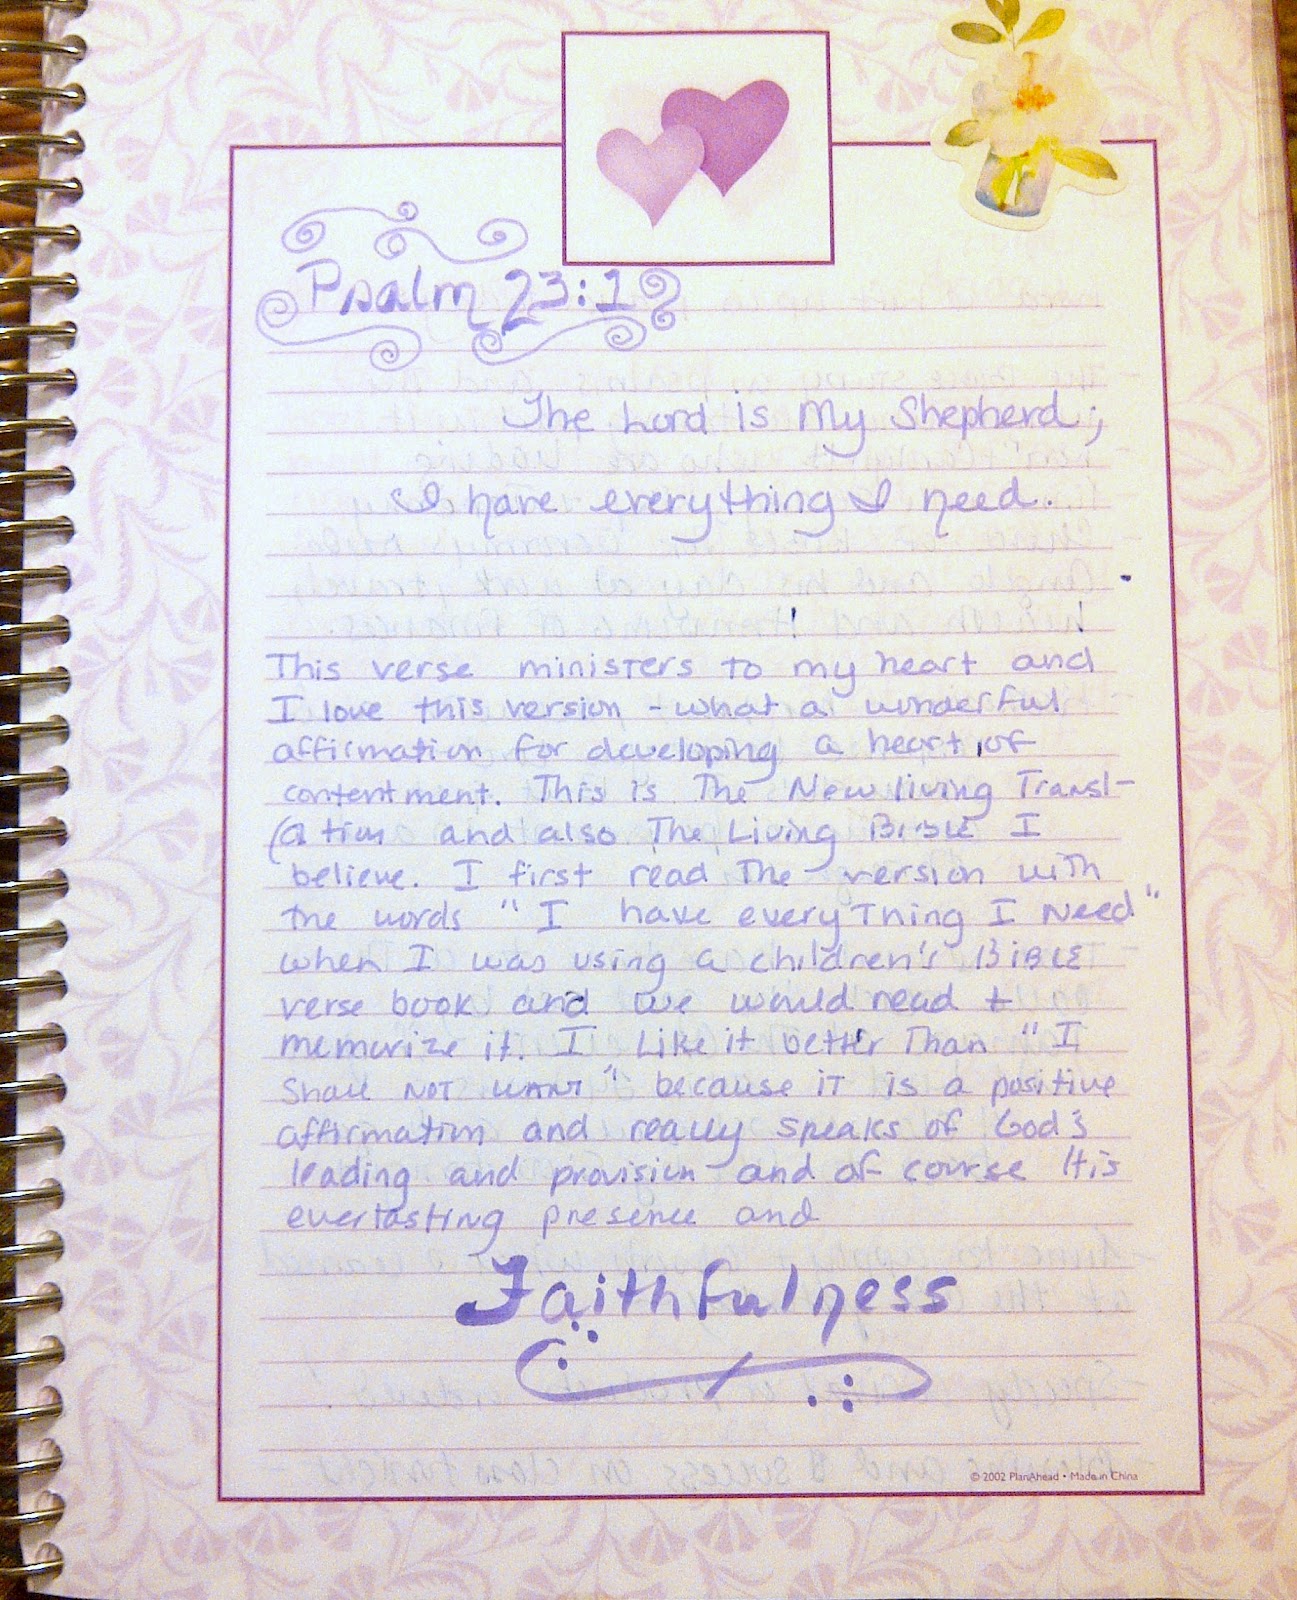 Psalm 23:1
The Lord is My Shepherd;
I have everything I need.
This verse ministers to my heart and
I love this version - what a wonderful
affirmation for developing a heart of
contentment. This is The New living Transl-
ation and also The Living Bible I
believe. I first read The version with
the words "I have everything I Need"
when I was using a children's Bible
verse book and we would read +
memorize it. I Like it better Than "I
Shall NOT WANT" because it is a positive
affirmation and really speaks of God's
leading and provision and of course His
everlasting presence and
Faithfulness
© 2002 PlanAhead • Made in China